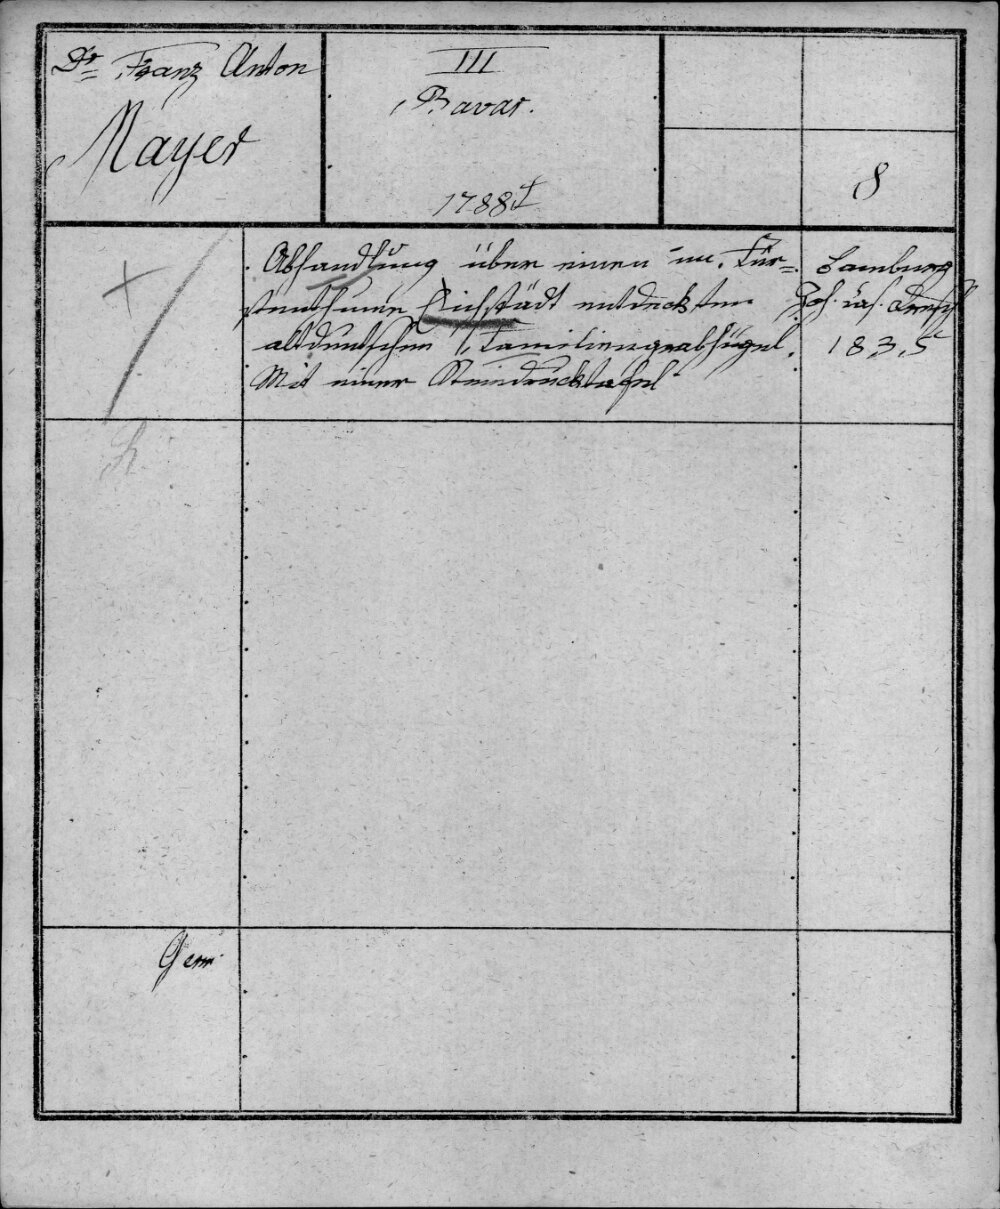 Dr Franz Anton
Mayer
III
Bavar.
1788
8
Abhandlung über einen im Für=
stenthume Eichstädt entdeckten
altdeutschen Familiengrabhügel.
Mit einer Steindrucktafel
Bamburg
Joh.
1835
Germ.